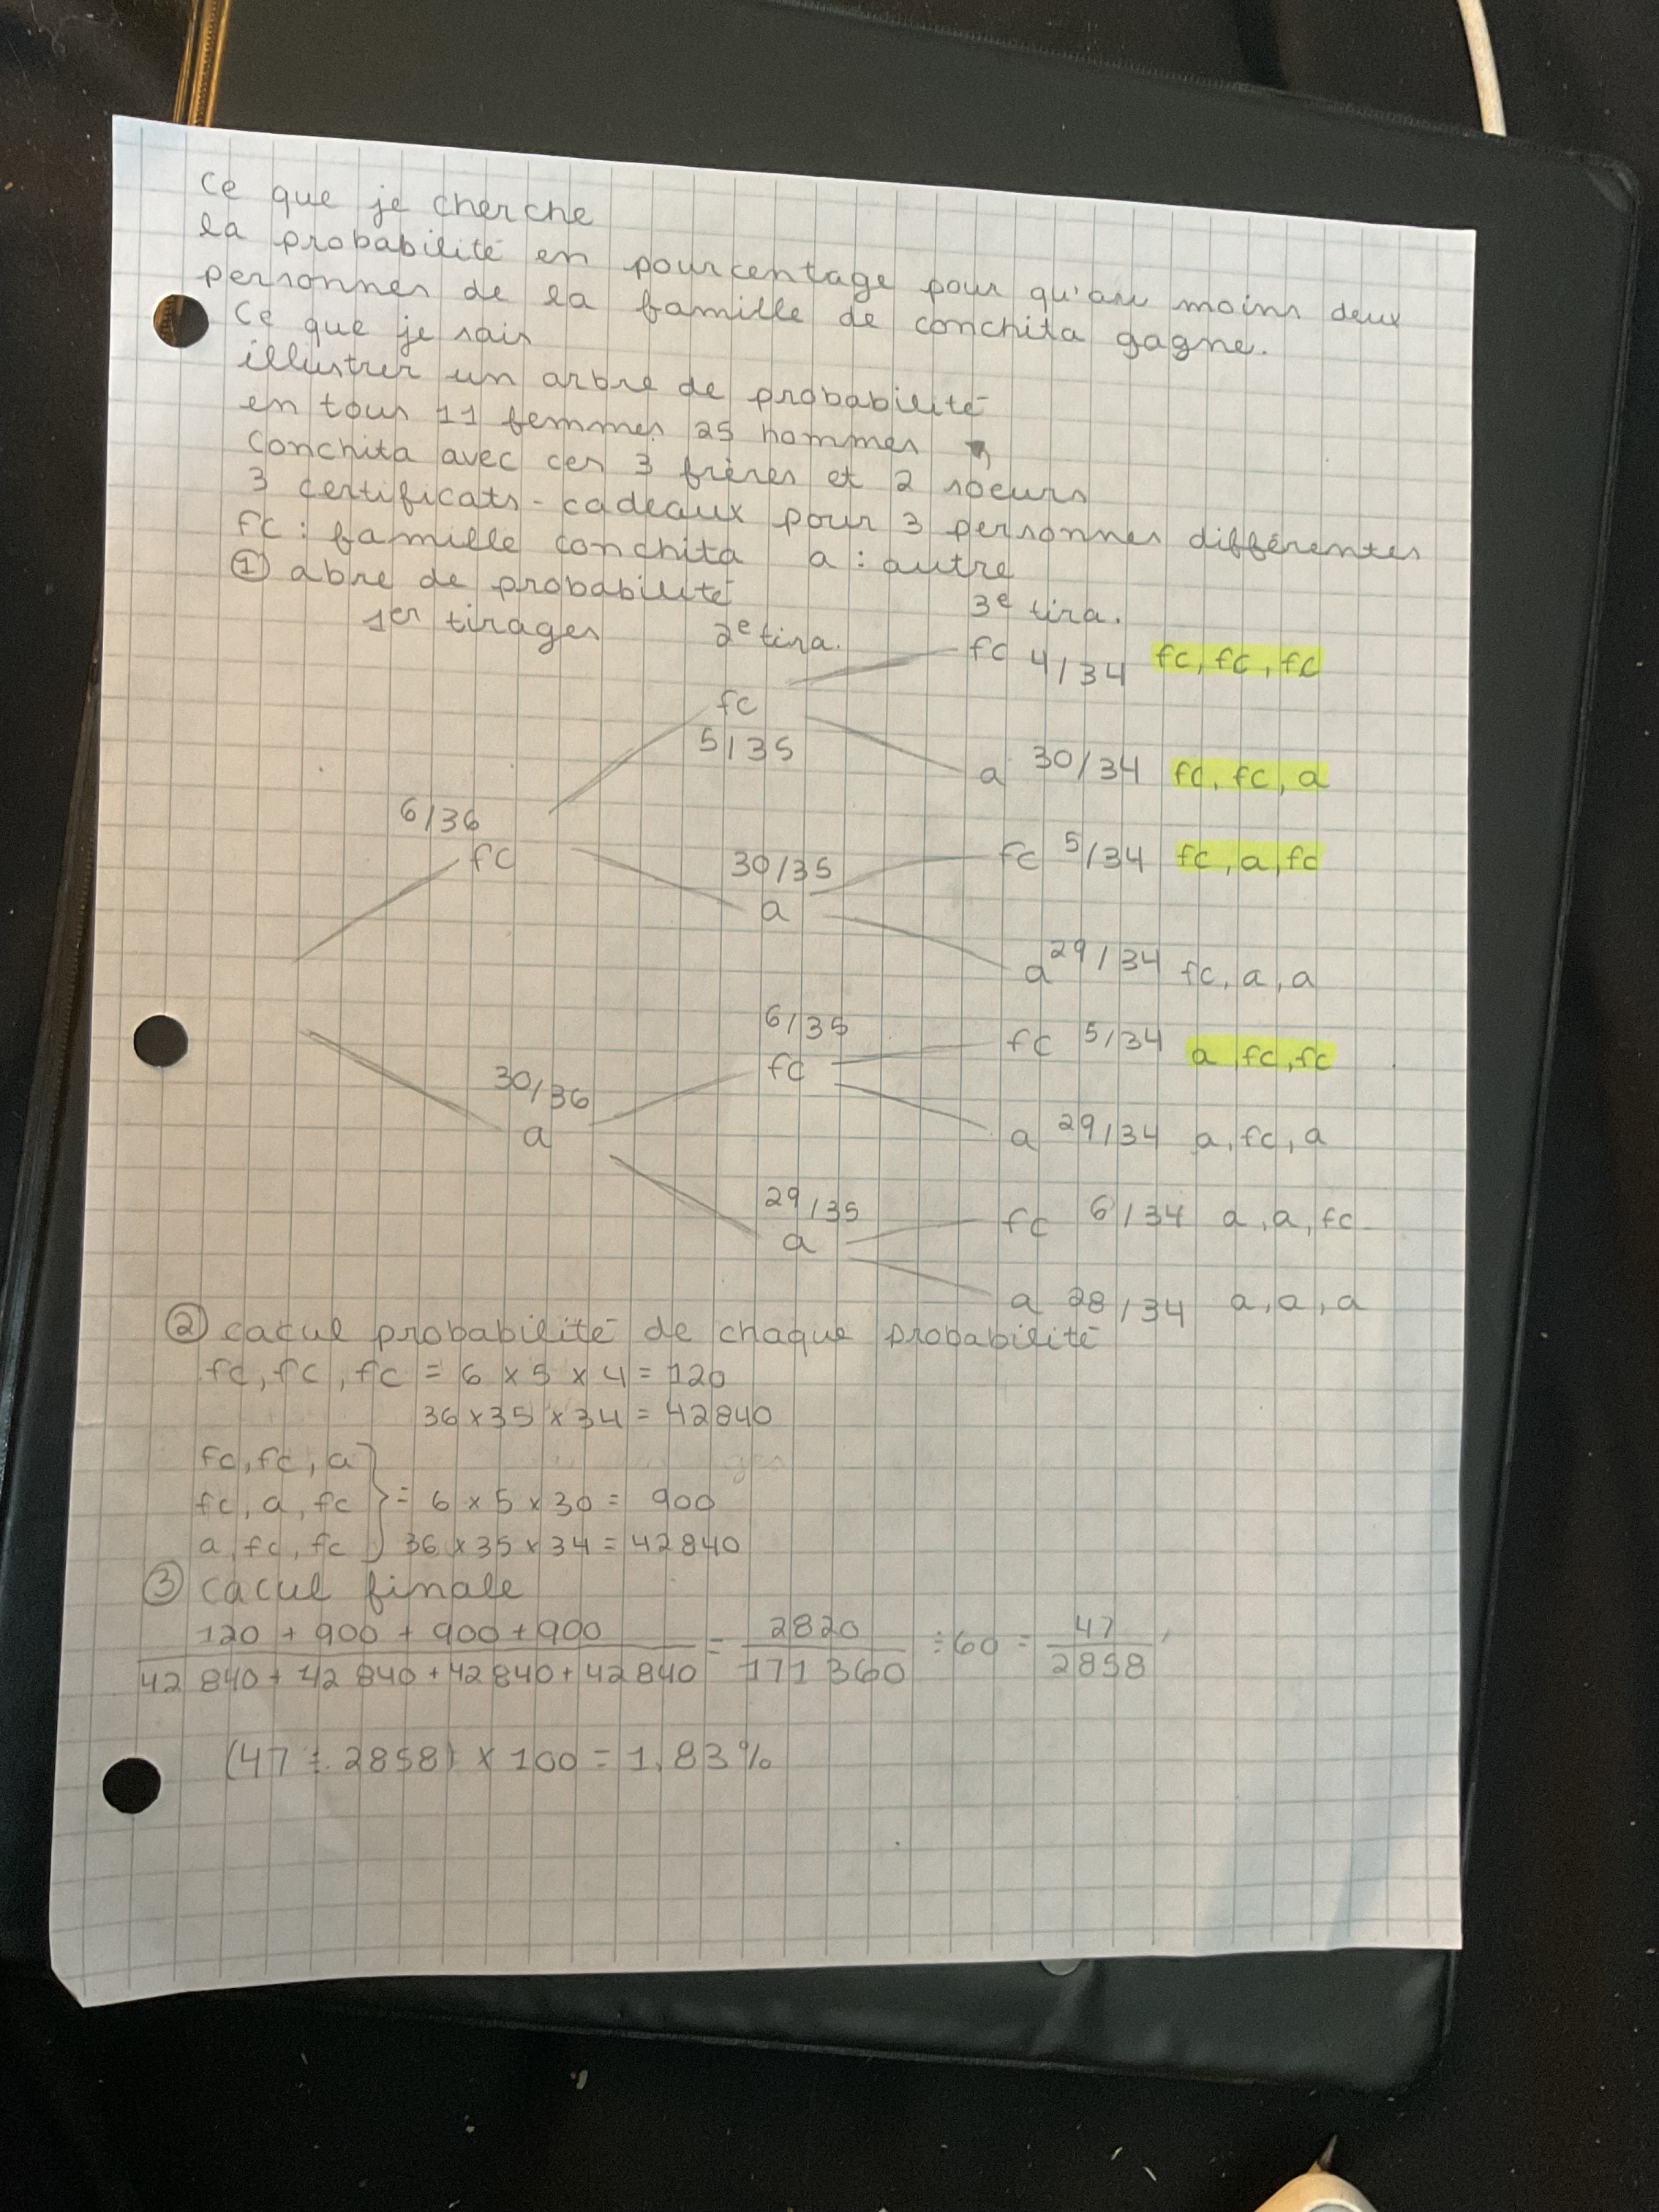 Ce que je cherche
la probabilité en pourcentage pour qu'au moins deux
personnes de la famille de conchita gagne.
Ce que je sais
illustrer un arbre de probabilité
en tous 11 femmes 25 hommes
Conchita avec ces 3 frères et 2 soeurs
3 certificats-cadeaux pour 3 personnes différentes
fc : famille conchita a : autre
① abre de probabilité
1er tirages 2e tira. 3e tira.
fc 4/34 fc, fc, fc
fc
5/35
a 30/34 fc, fc, a
6/36
fc
30/35
a
fc 5/34 fc, a, fc
a 29/34 fc, a, a
6/35
fc
fc 5/34 a, fc, fc
30/36
a
a 29/34 a, fc, a
29/35
a
fc 6/34 a, a, fc
a 28/34 a, a, a
② cacul probabilité de chaque probabilité
fc, fc, fc = 6 x 5 x 4 = 120
36 x 35 x 34 = 42840
fc, fc, a
fc, a, fc } = 6 x 5 x 30 = 900
a, fc, fc 36 x 35 x 34 = 42840
③ cacul finale
120 + 900 + 900 + 900 = 2820 ÷ 60 = 47
42 840 + 42 840 + 42 840 + 42 840 171 360 2858
(47 ÷ 2858) x 100 = 1,83 %